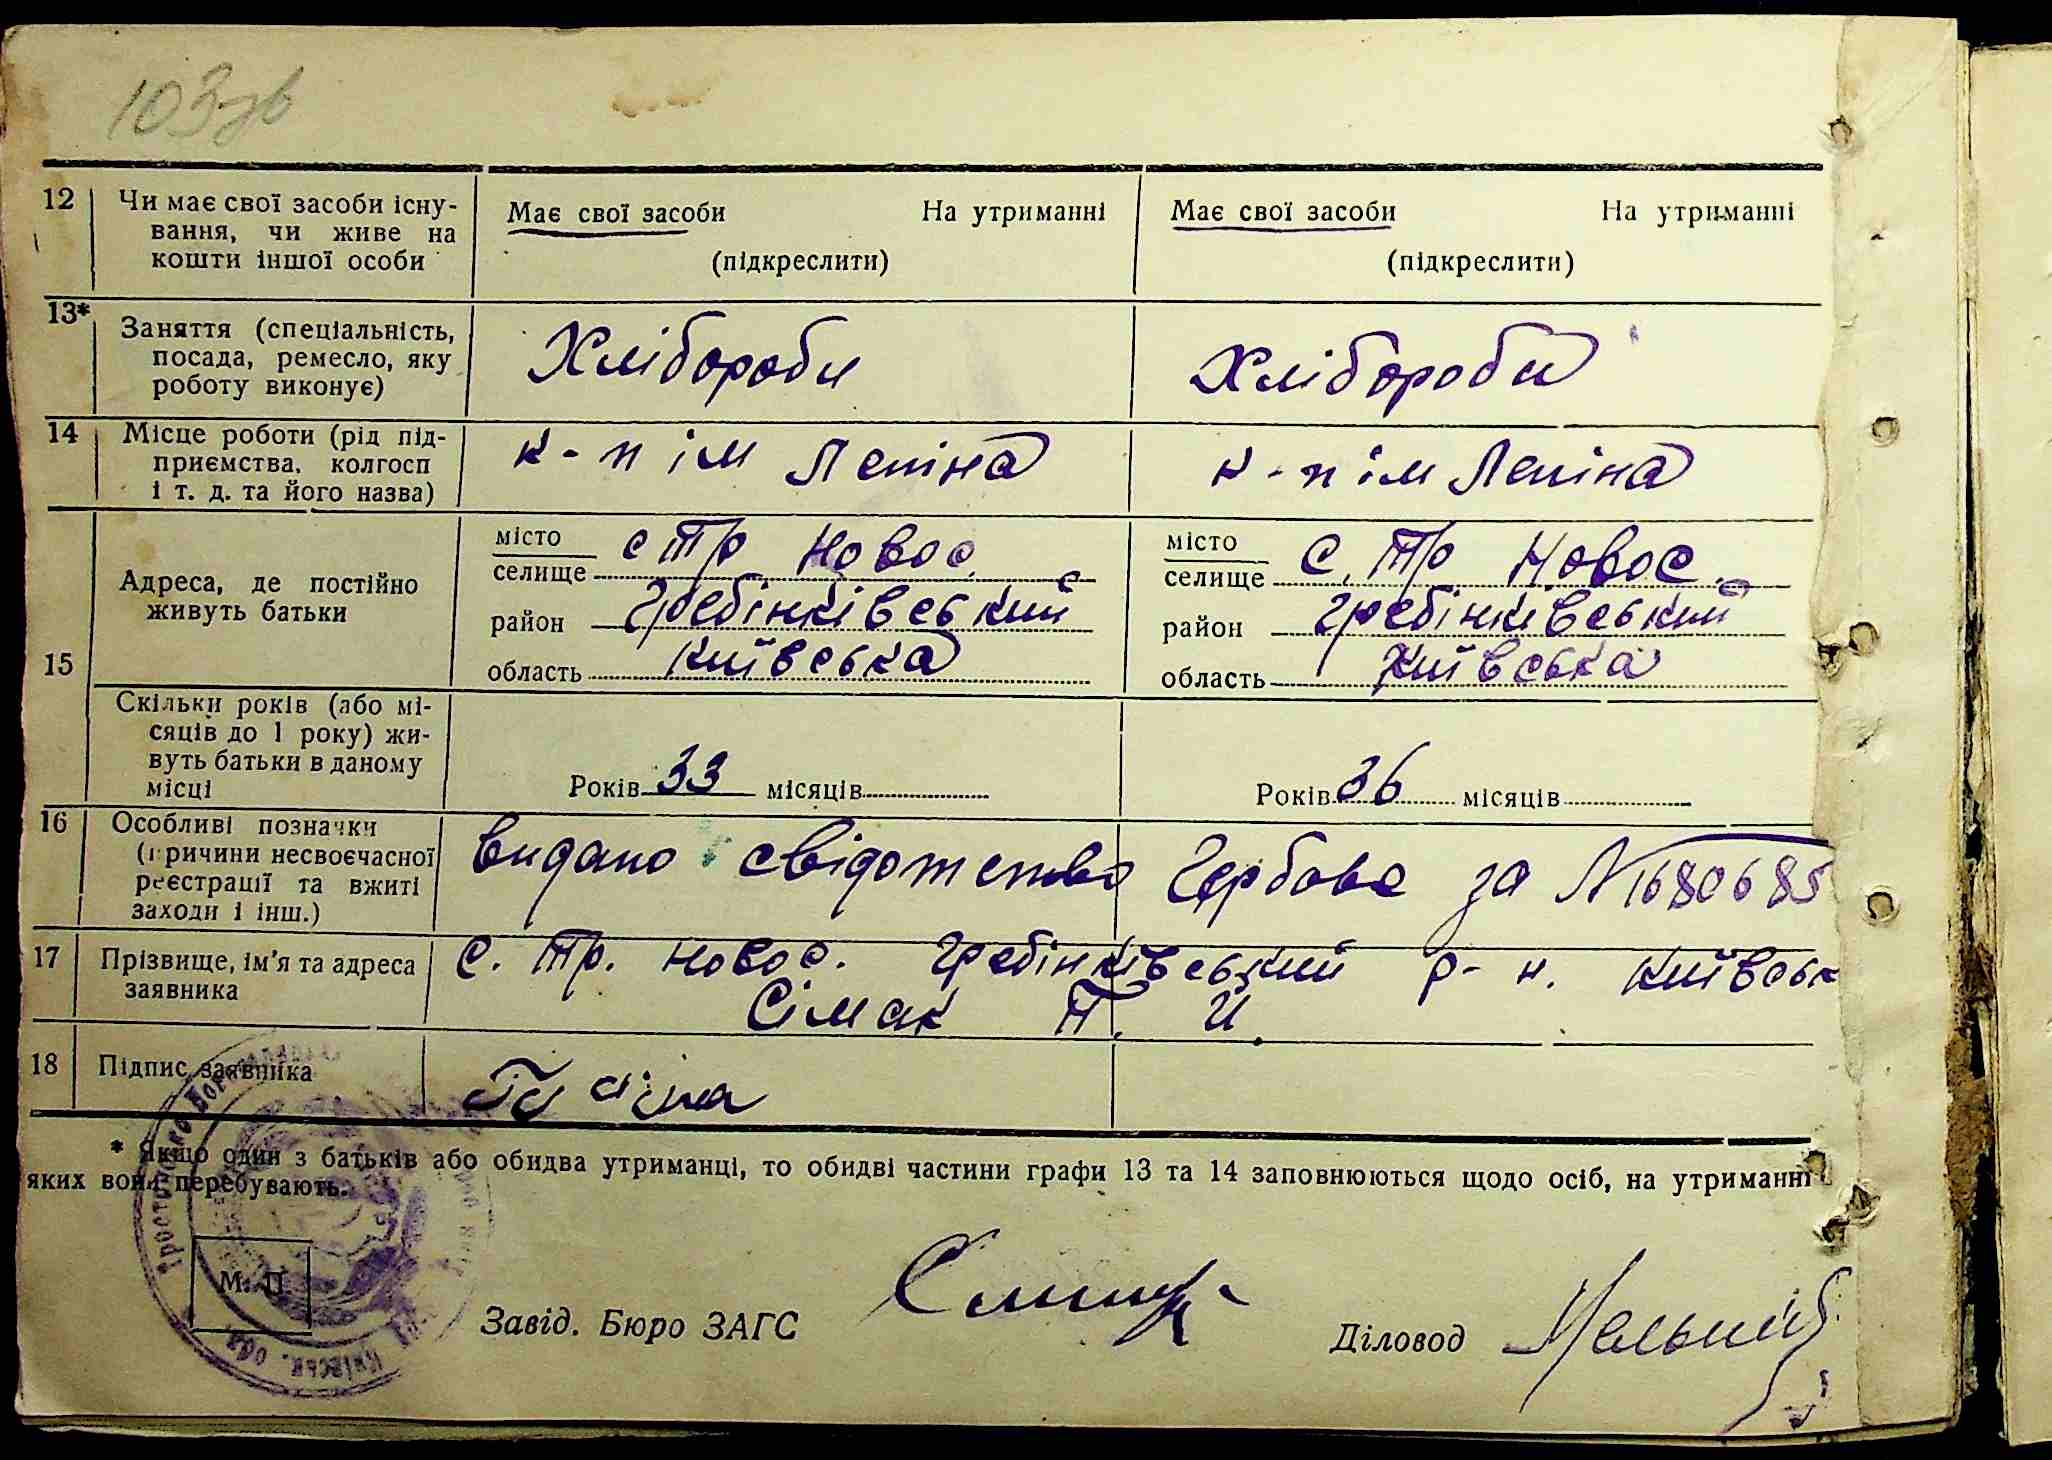 103 зв
12 Чи має свої засоби існу-
вання, чи живе на
кошти іншої особи
Має свої засоби На утриманні
(підкреслити)
Має свої засоби На утриманні
(підкреслити)
13* Заняття (спеціальність,
посада, ремесло, яку
роботу виконує)
Хлібороби
Хлібороби
14 Місце роботи (рід під-
приємства, колгосп
і т. д. та його назва)
к-п ім Леніна
к-п ім Леніна
15 Адреса, де постійно
живуть батьки
місто
селище с Тр Новос.
район Гребінківський
область Київська
місто
селище С. Тр Новос.
район Гребінківський
область Київська
Скільки років (або мі-
сяців до 1 року) жи-
вуть батьки в даному
місці
Років 33 місяців
Років 36 місяців
16 Особливі позначки
(причини несвоєчасної
реєстрації та вжиті
заходи і інш.)
видано свідотство Гербове за № 1680685
17 Прізвище, ім'я та адреса
заявника
с. Тр. Новос. Гребінківський р-н. Київськ
Сімак П. И.
18 Підпис заявника
* Якщо один з батьків або обидва утриманці, то обидві частини графи 13 та 14 заповнюються щодо осіб, на утриманні
яких вони перебувають.
М. П.
Київськ. обл.
Завід. Бюро ЗАГС
Діловод Мельник